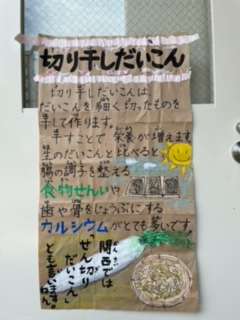 切り干しだいこん
切り干しだいこんは
だいこんを細く切ったものを
干して作ります。
干すことで栄養が増えます。
生のだいこんとくらべると
腸の調子を整える
食物せんいや
歯や骨をじょうぶにする
カルシウムがとても多いです。
関西では
「せん切り
だいこん」
とも言います。